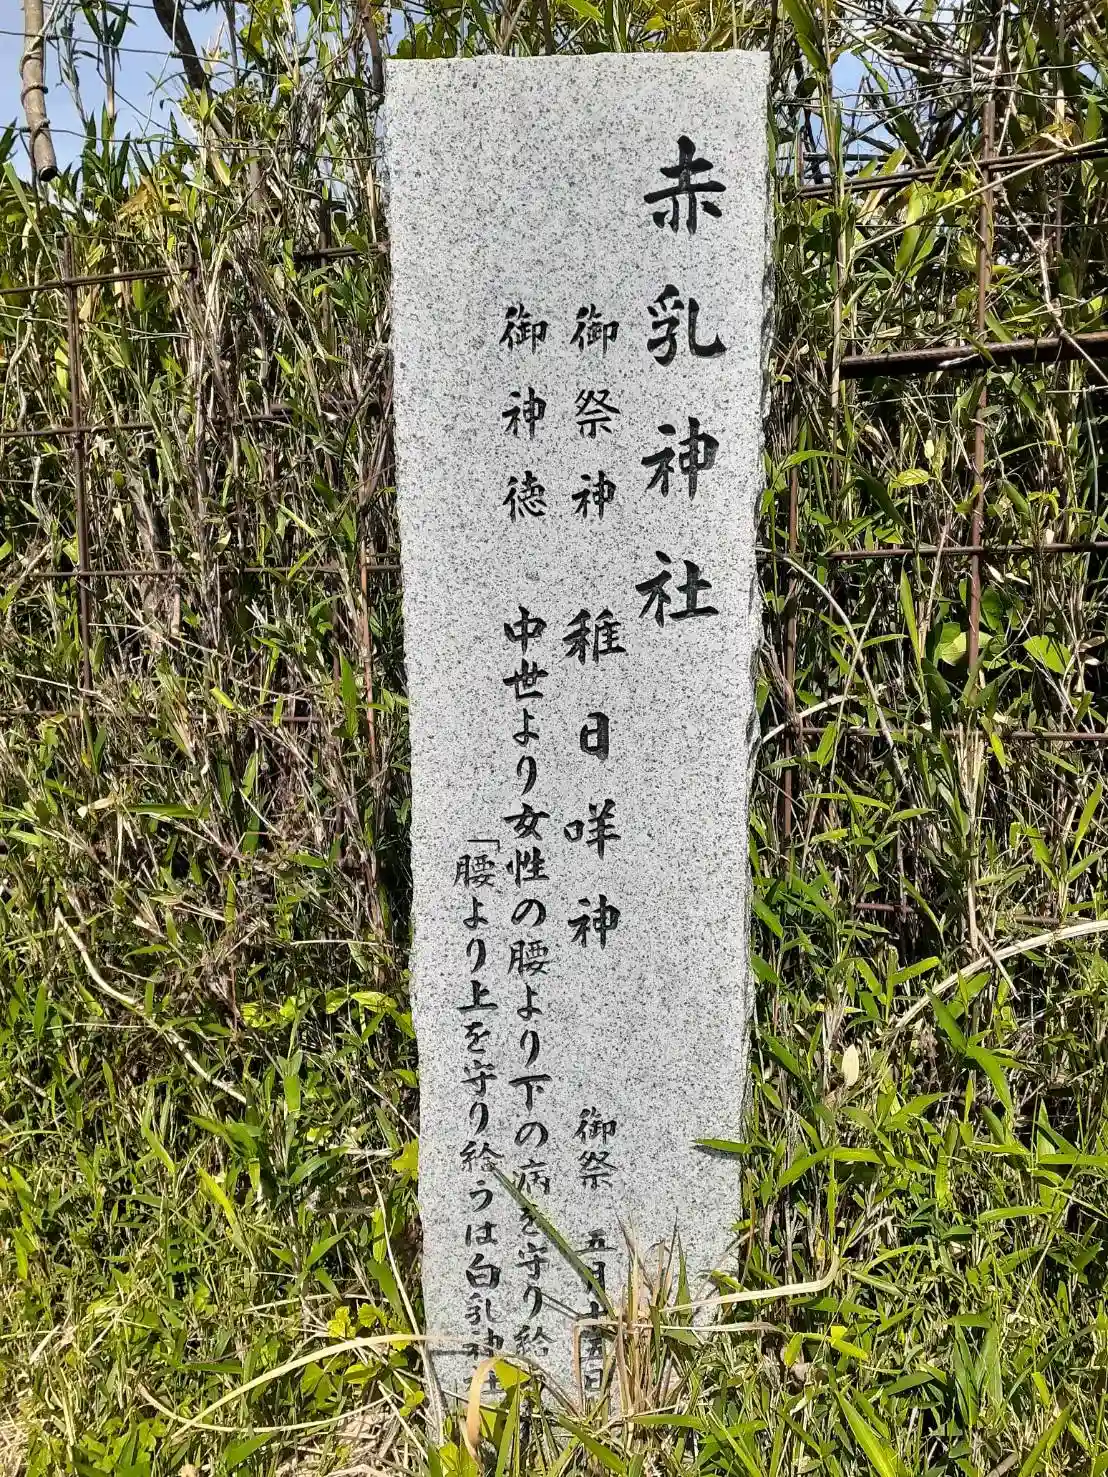 赤乳神社
御祭神 稚日咩神 御祭 五月十五日
御神徳 中世より女性の腰より下の病を守り給
「腰より上を守り給うは白乳神社